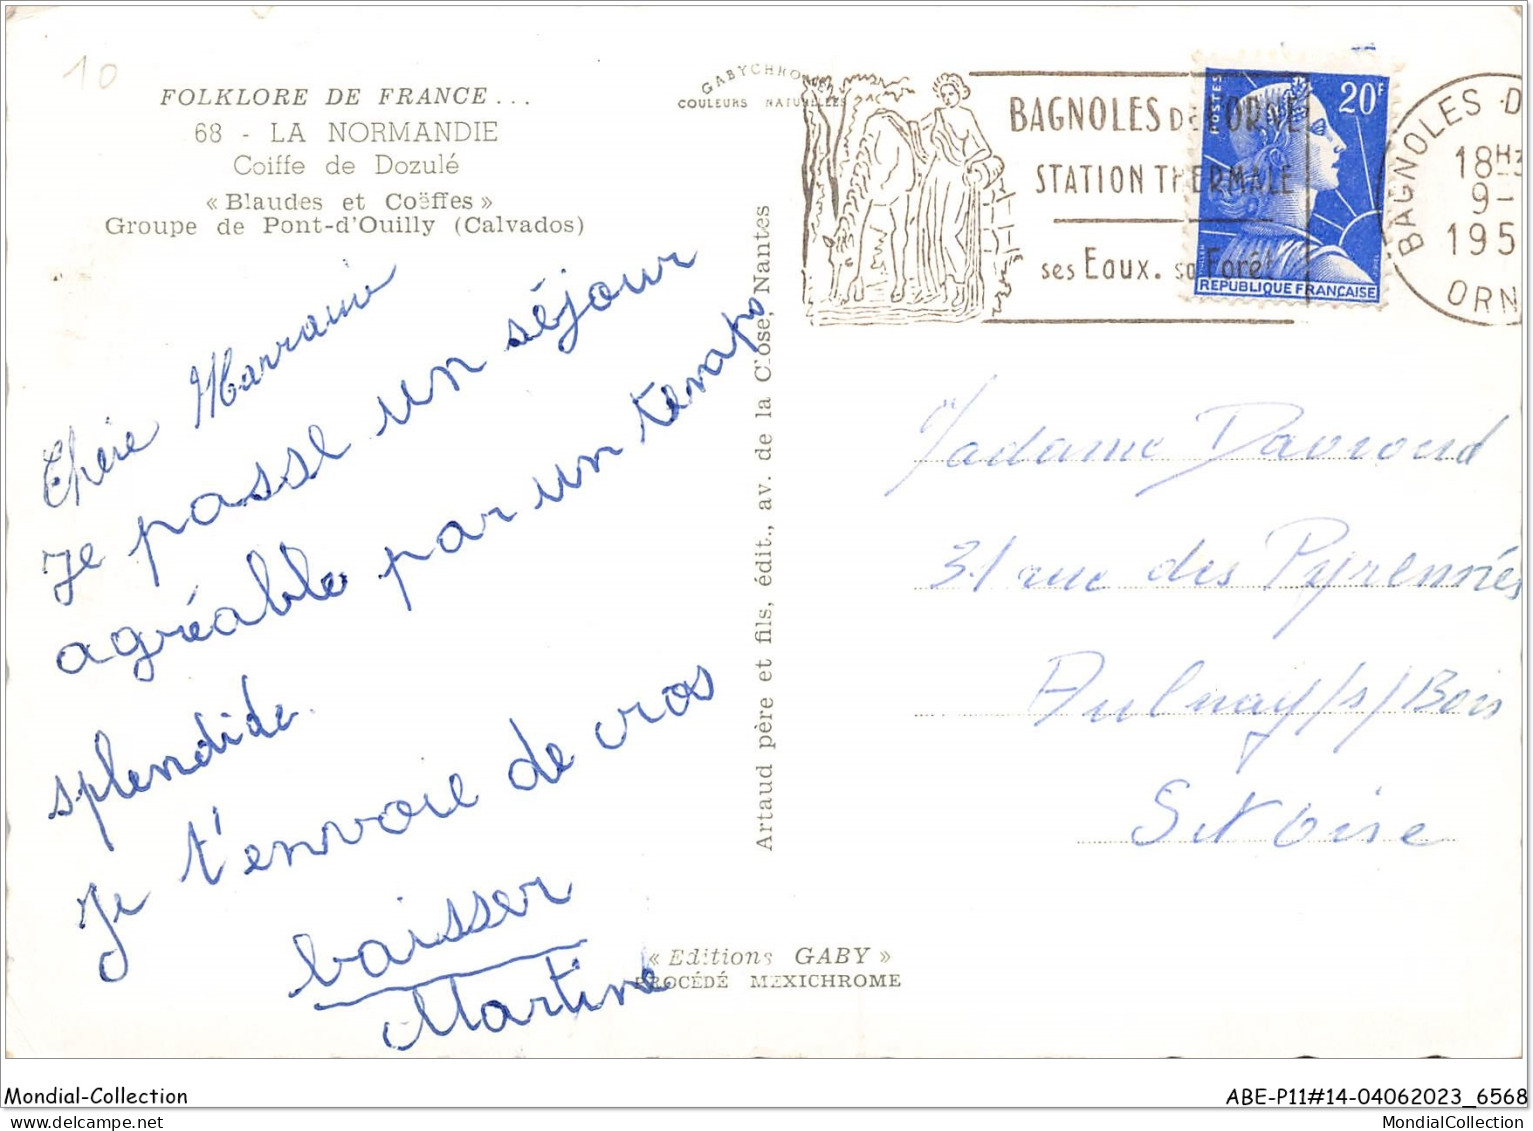 10
FOLKLORE DE FRANCE...
68 - LA NORMANDIE
Coiffe de Dozulé
« Blaudes et Coëffes »
Groupe de Pont-d'Ouilly (Calvados)
GABYCHROME
COULEURS NATURELLES
BAGNOLES DE L'ORNE
STATION THERMALE
ses Eaux. sa Forêt
POSTES
20F
REPUBLIQUE FRANÇAISE
BAGNOLES D
18H
9-
195
ORN
Chère Marraine
Je passe un séjour
agréable par un temps
splendide.
Je t'envoie de gros
baisser
Martine
Artaud père et fils, édit., av. de la Close, Nantes
Madame Davroud
31 rue des Pyrennées
Aulnay/s/Bois
S et Oise
« Editions GABY »
PROCÉDÉ MEXICHROME
Mondial-Collection
ABE-P11#14-04062023_6568
MondialCollection